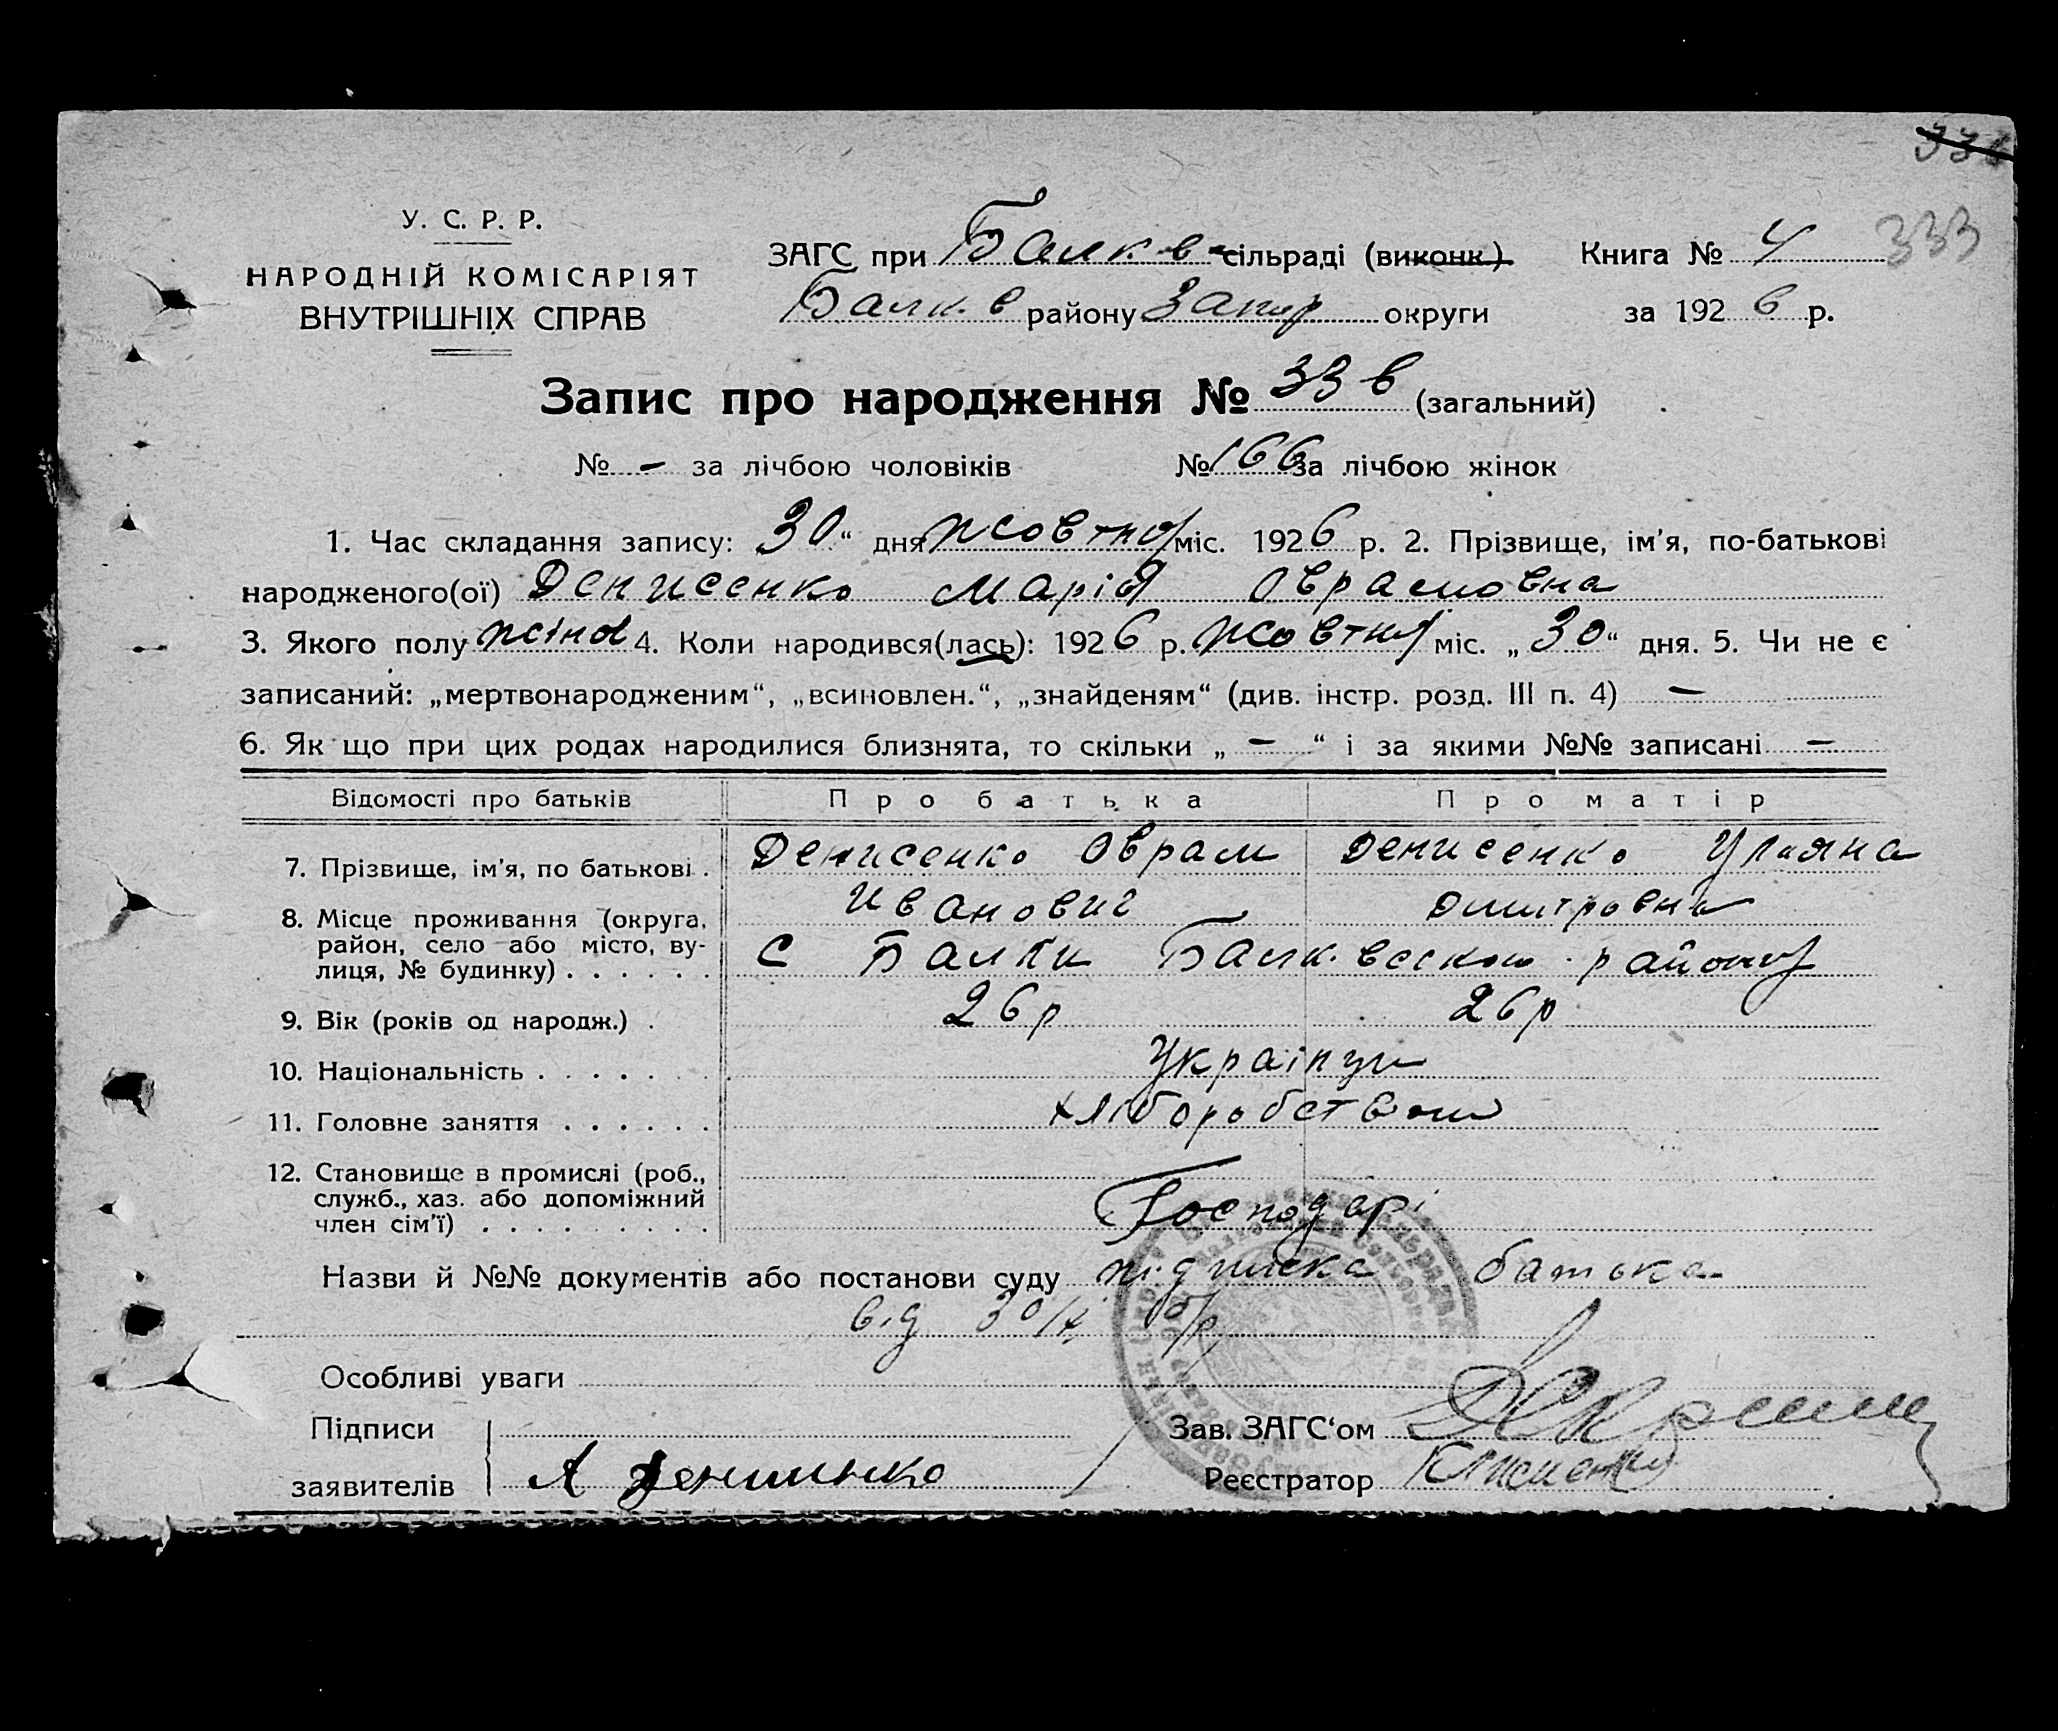 333
У. С. Р. Р.
НАРОДНІЙ КОМІСАРІЯТ
ВНУТРІШНІХ СПРАВ
ЗАГС при Балків сільраді (виконк.)
Книга № 4
333
Балк. в району Запор округи
за 1926 р.
Запис про народження № 336 (загальний)
№ – за лічбою чоловіків № 166 за лічбою жінок
1. Час складання запису: 30“ дня жовтня міс. 1926 р. 2. Прізвище, ім’я, по-батькові
народженого(ої) Денисенко Марія Оврамовна
3. Якого полу жіноч 4. Коли народився(лась): 1926 р. жовтня міс. „30“ дня. 5. Чи не є
записаний: „мертвонародженим“, „всиновлен.“, „знайденям“ (див. інстр. розд. III п. 4) –
6. Як що при цих родах народилися близнята, то скільки „ – “ і за якими №№ записані –
Відомості про батьків Про батька Про матір
7. Прізвище, ім’я, по батькові . Денисенко Оврам Денисенко Уляяна
Иванович Дмитровна
8. Місце проживання (округа,
район, село або місто, ву-
лиця, № будинку) . . . . . . С Балки Балк. вського району
9. Вік (років од народж.) . 26 р 26 р
10. Національність . . . . . . . Українци
11. Головне заняття . . . . . . хліборобством
12. Становище в промислі (роб.,
служб., хаз. або допоміжний
член сім’ї) . . . . . . . . . Господарі
Назви й №№ документів або постанови суду підписка батька
від 30/X
Особливі уваги
Підписи
заявителів А Денисенко
Зав. ЗАГС‘ом
Реєстратор